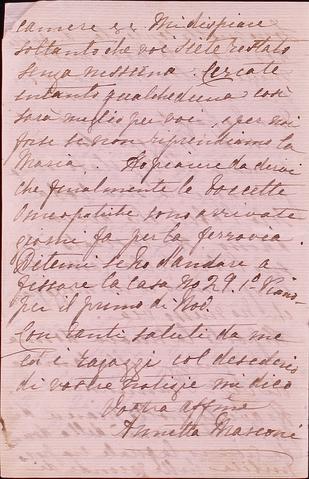 camere ec. Mi dispiace
soltanto che voi siete restato
senza nessuna. Cercate
intanto qualcheduna così
sarà meglio per voi e per noi
forse se non riprendiamo la
Maria. Ho piacere da dirvi
che finalmente le boccette
Omeopatiche sono arrivate
giorni fa per la ferrovia.
Ditemi se ho d'andare a
fissare la casa No 29. 1º Piano
per il primo di Nov.
Con tanti saluti da me
ed i ragazzi col desiderio
di vostre notizie mi dico
Vostra affma
Annetta Masconi